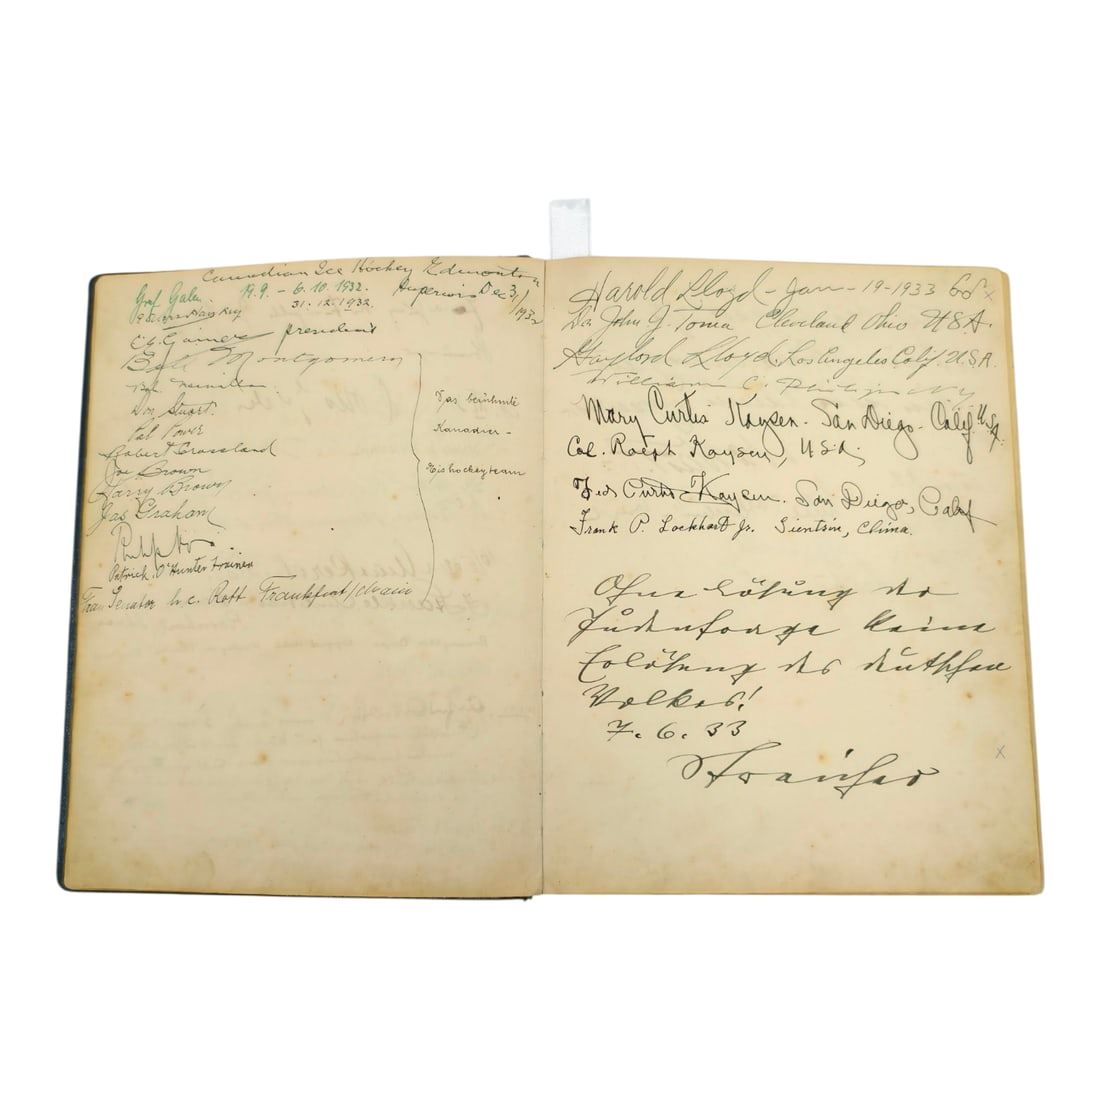 Canadian Ice Hockey Edmonton
Graf Galen 19.9. – 6.10.1932. Superiors Dec 31/1932
31.12.1932.
president
Bill Montgomery
Don Stuart
Pal Power
Robert Crossland
Joe Brown
Harry Brown
Jas Graham
Patrick. O'Hunter Trainer
Frau Senator h.c. Roth Frankfurt/Main
Das berühmte
Kanadier-
Eishockeyteam
Harold Lloyd – Jan – 19 – 1933 68 x
Dr. John J. Toma Cleveland Ohio USA.
Gaylord Lloyd. Los Angeles Calif. U.S.A.
William C.
Mary Curtis Kaysen. San Diego. Calif. U.S.A.
Col. Ralph Kaysen, USA.
Curtis Kaysen. San Diego, Calif
Frank P. Lockhart Jr. Tientsin, China.
Ohne Lösung der
Judenfrage keine
Erlösung des deutschen
Volkes!
7. 6. 33
x
Streicher